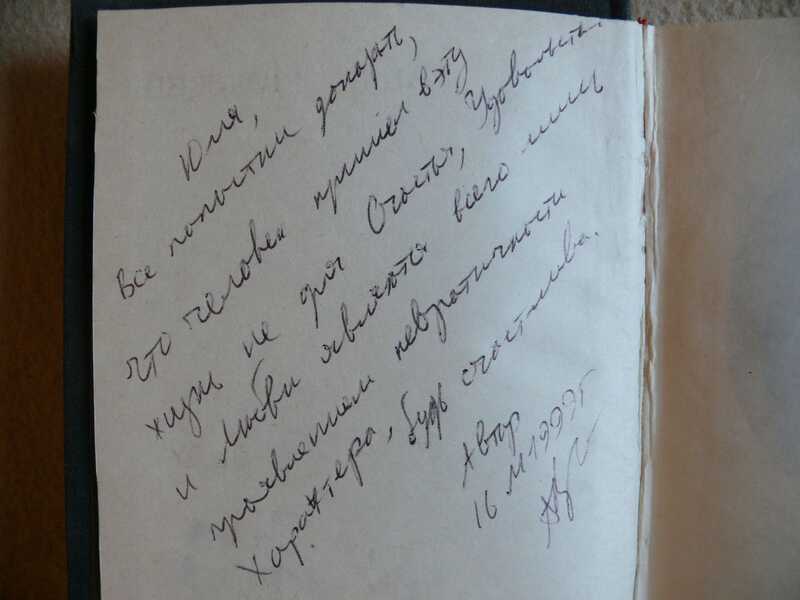 Юля,
Все попытки доказать,
что человек пришёл в эту
жизнь не для Счастья, Удовольств.
и Любви являются всего лишь
проявлением невротичности
характера, будь счастлива.
Автор
16 М 1999г